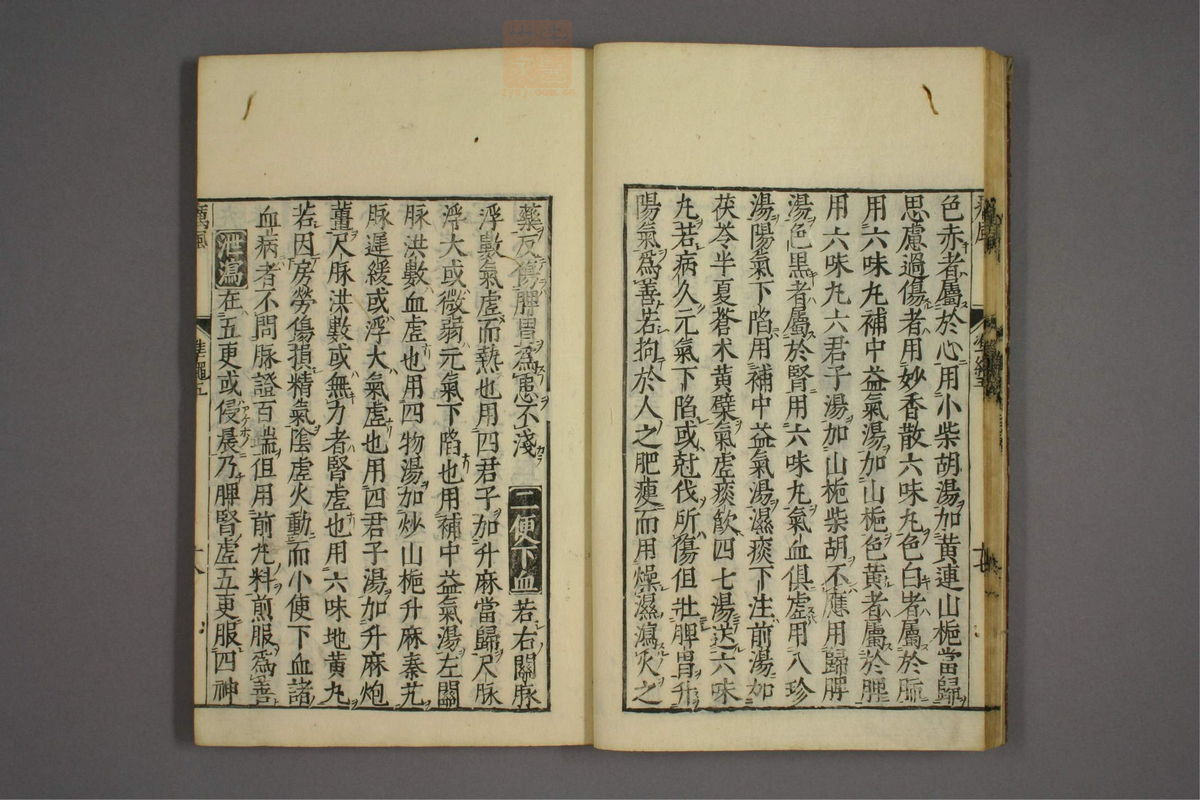 色赤者屬於心用小柴胡湯加黄連山梔當歸
思慮過傷者用妙香散六味丸色白者屬於肺
用六味丸補中益氣湯加山梔色黄者屬於脾
用六味丸六君子湯加山梔柴胡不應用歸脾
湯色黑者屬於腎用六味丸氣血俱虚用八珍
湯陽氣下陷用補中益氣湯濕痰下注前湯加
茯苓半夏蒼术黄檗氣虚痰飲四七湯送六味
丸若病久元氣下陷或尅伐所傷但壮脾胃升
陽氣爲善若拘於人之肥瘦而用燥濕瀉火之
藥反傷脾胃爲患不淺 二便下血 若右關脉
浮數氣虚而熱也用四君子加升麻當歸尺脉
浮大或微弱元氣下陷也用補中益氣湯左關
脉洪數血虚也用四物湯加炒山梔升麻秦艽
脉遲緩或浮大氣虚也用四君子湯加升麻炮
薑尺脉洪數或無力者腎虚也用六味地黄丸
若因房勞傷損精氣陰虚火動而小便下血諸
血病者不問脉證百端但用前丸料煎服爲善
泄瀉 在五更或侵晨乃脾腎虚五更服四神
癘風 準繩五